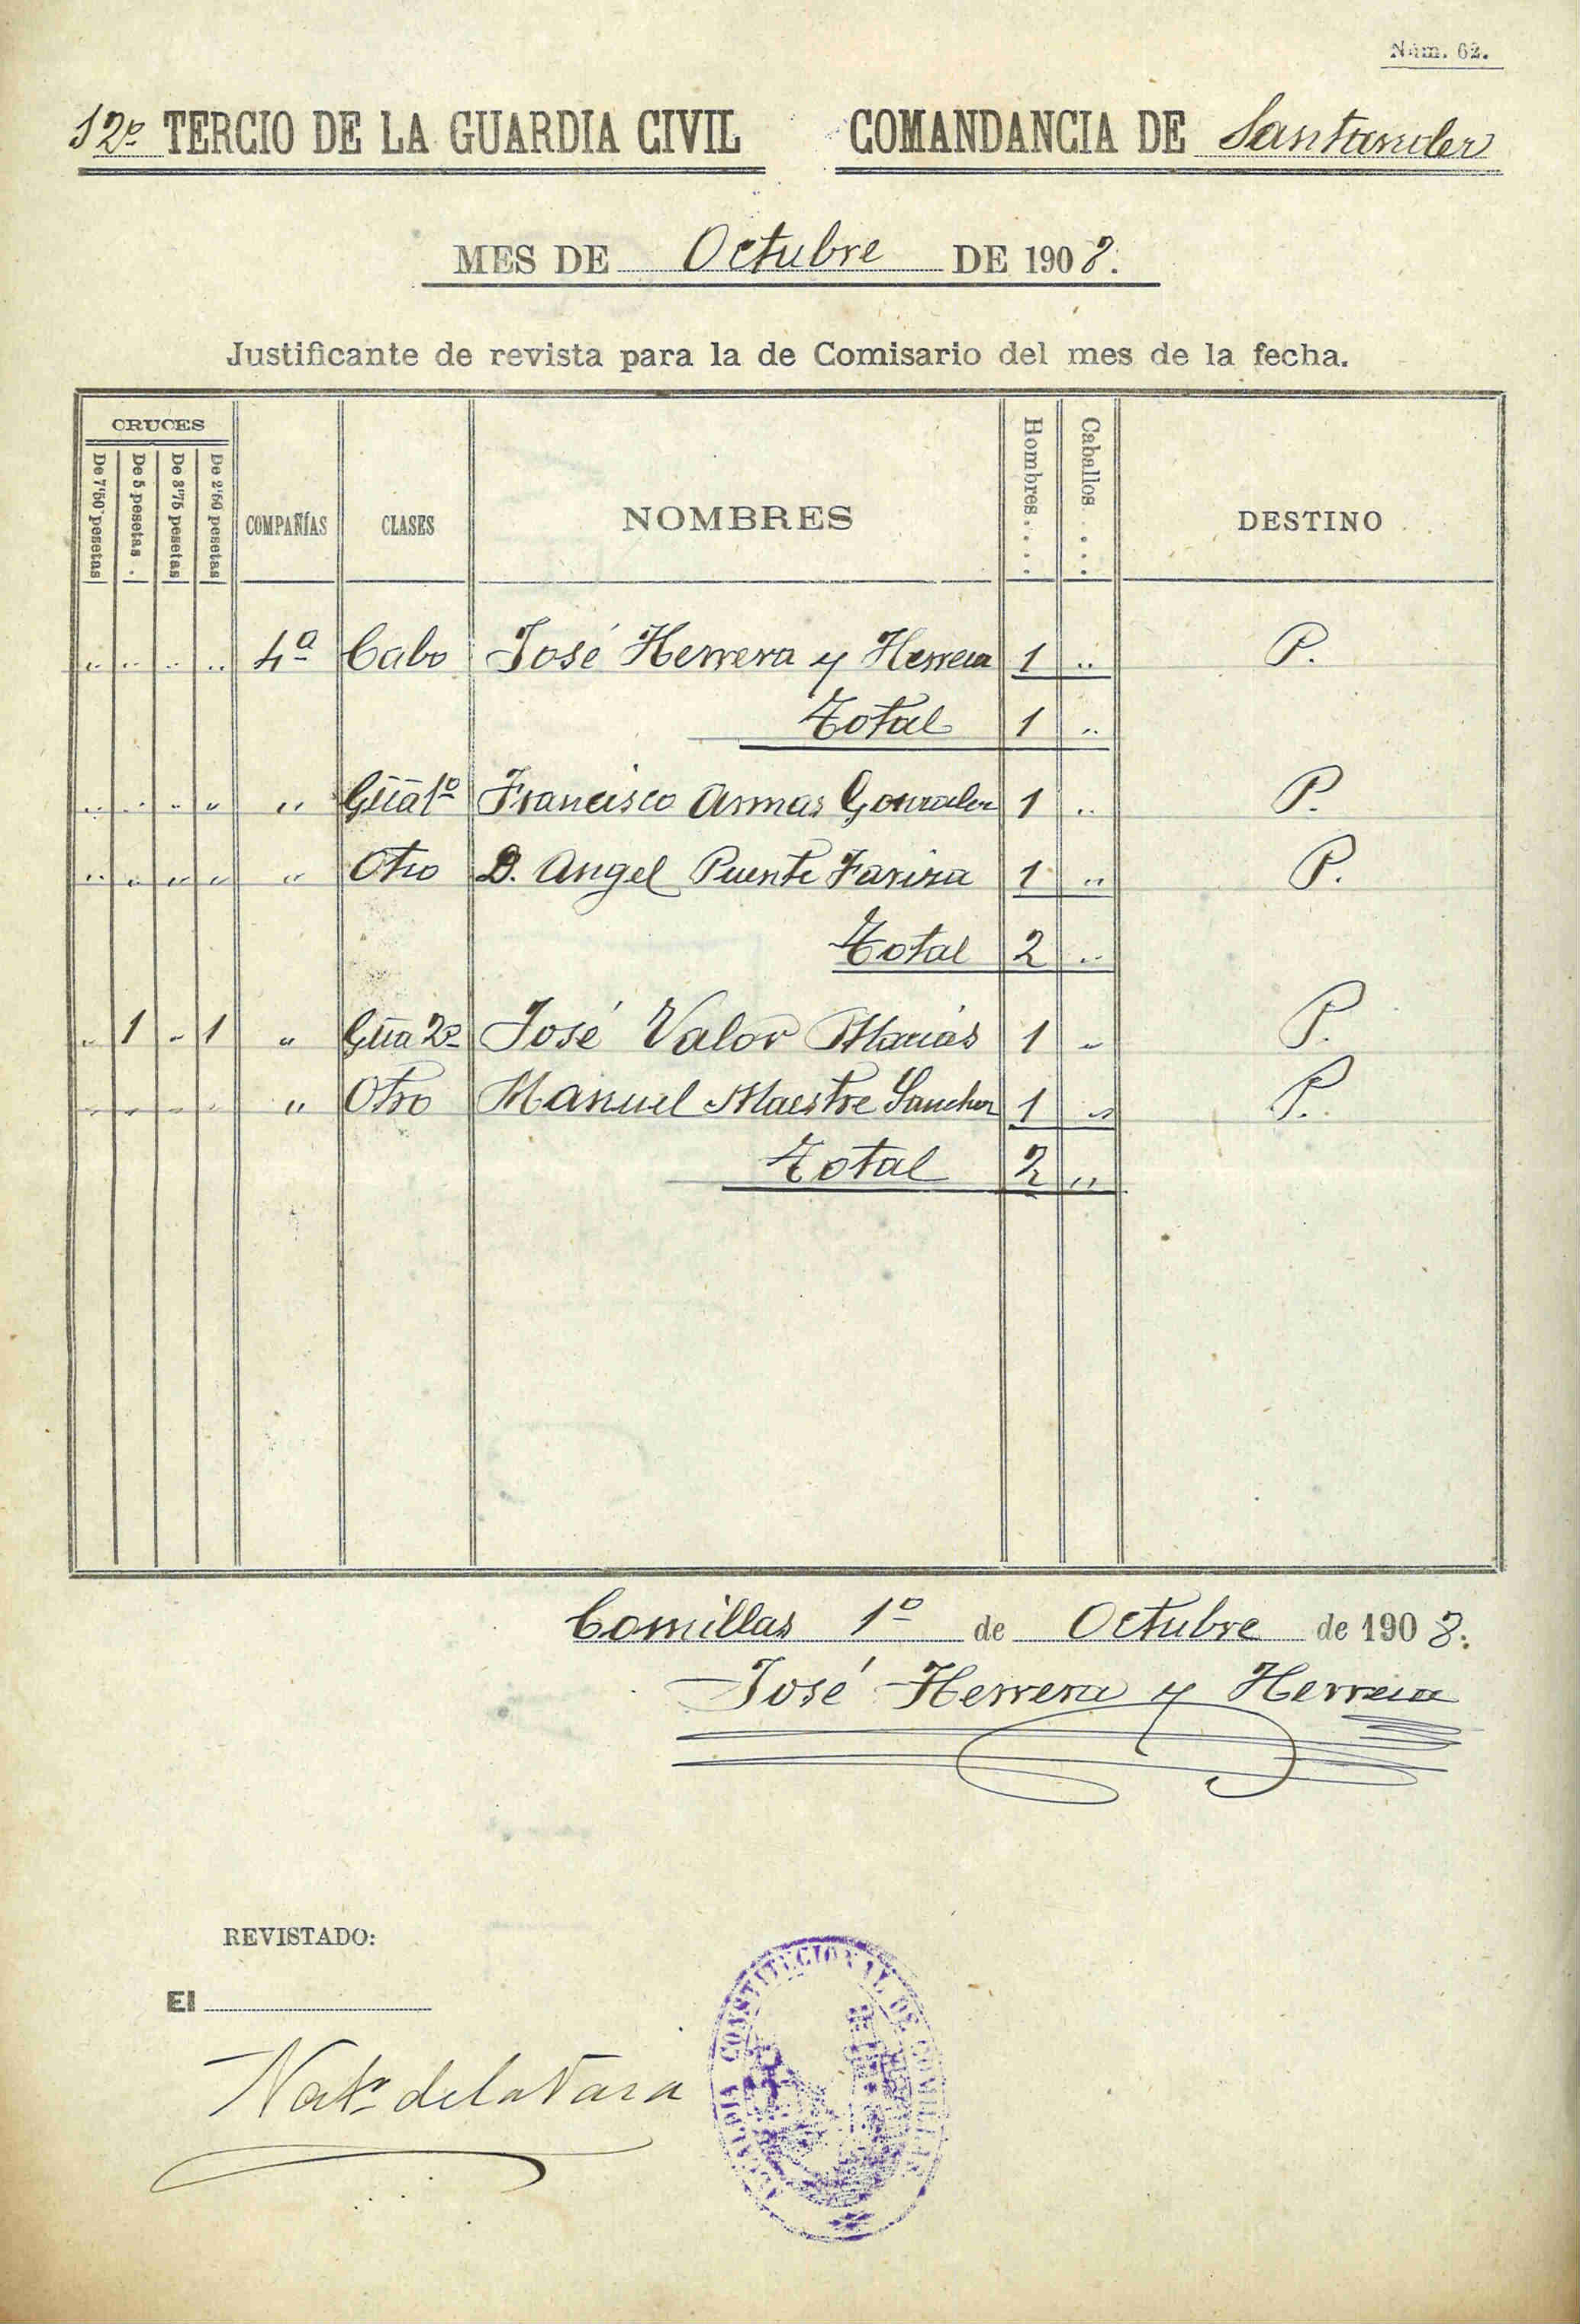 Núm. 62.
12º TERCIO DE LA GUARDIA CIVIL COMANDANCIA DE Santander
MES DE Octubre DE 1908.
Justificante de revista para la de Comisario del mes de la fecha.
CRUCES
De 7'50 pesetas De 5 pesetas . De 3'75 pesetas De 2'50 pesetas COMPAÑÍAS CLASES NOMBRES Hombres. . . . Caballos . . . . DESTINO
" " " " 4ª Cabo José Herrera y Herrera 1 " P.
Total 1 "
" " " " " Güa 1º Francisco Armas Gonzalez 1 " P.
" " " " " Otro D. Angel Puente Farina 1 " P.
Total 2 "
" 1 " 1 " Güa 2º José Valor Macias 1 " P.
" " " " " Otro Manuel Maestre Sanchez 1 " P.
Total 2 "
Comillas 1º de Octubre de 1908.
José Herrera y Herrera
REVISTADO:
El
de la Vara
ALCALDIA CONSTITUCIONAL DE COMILLAS